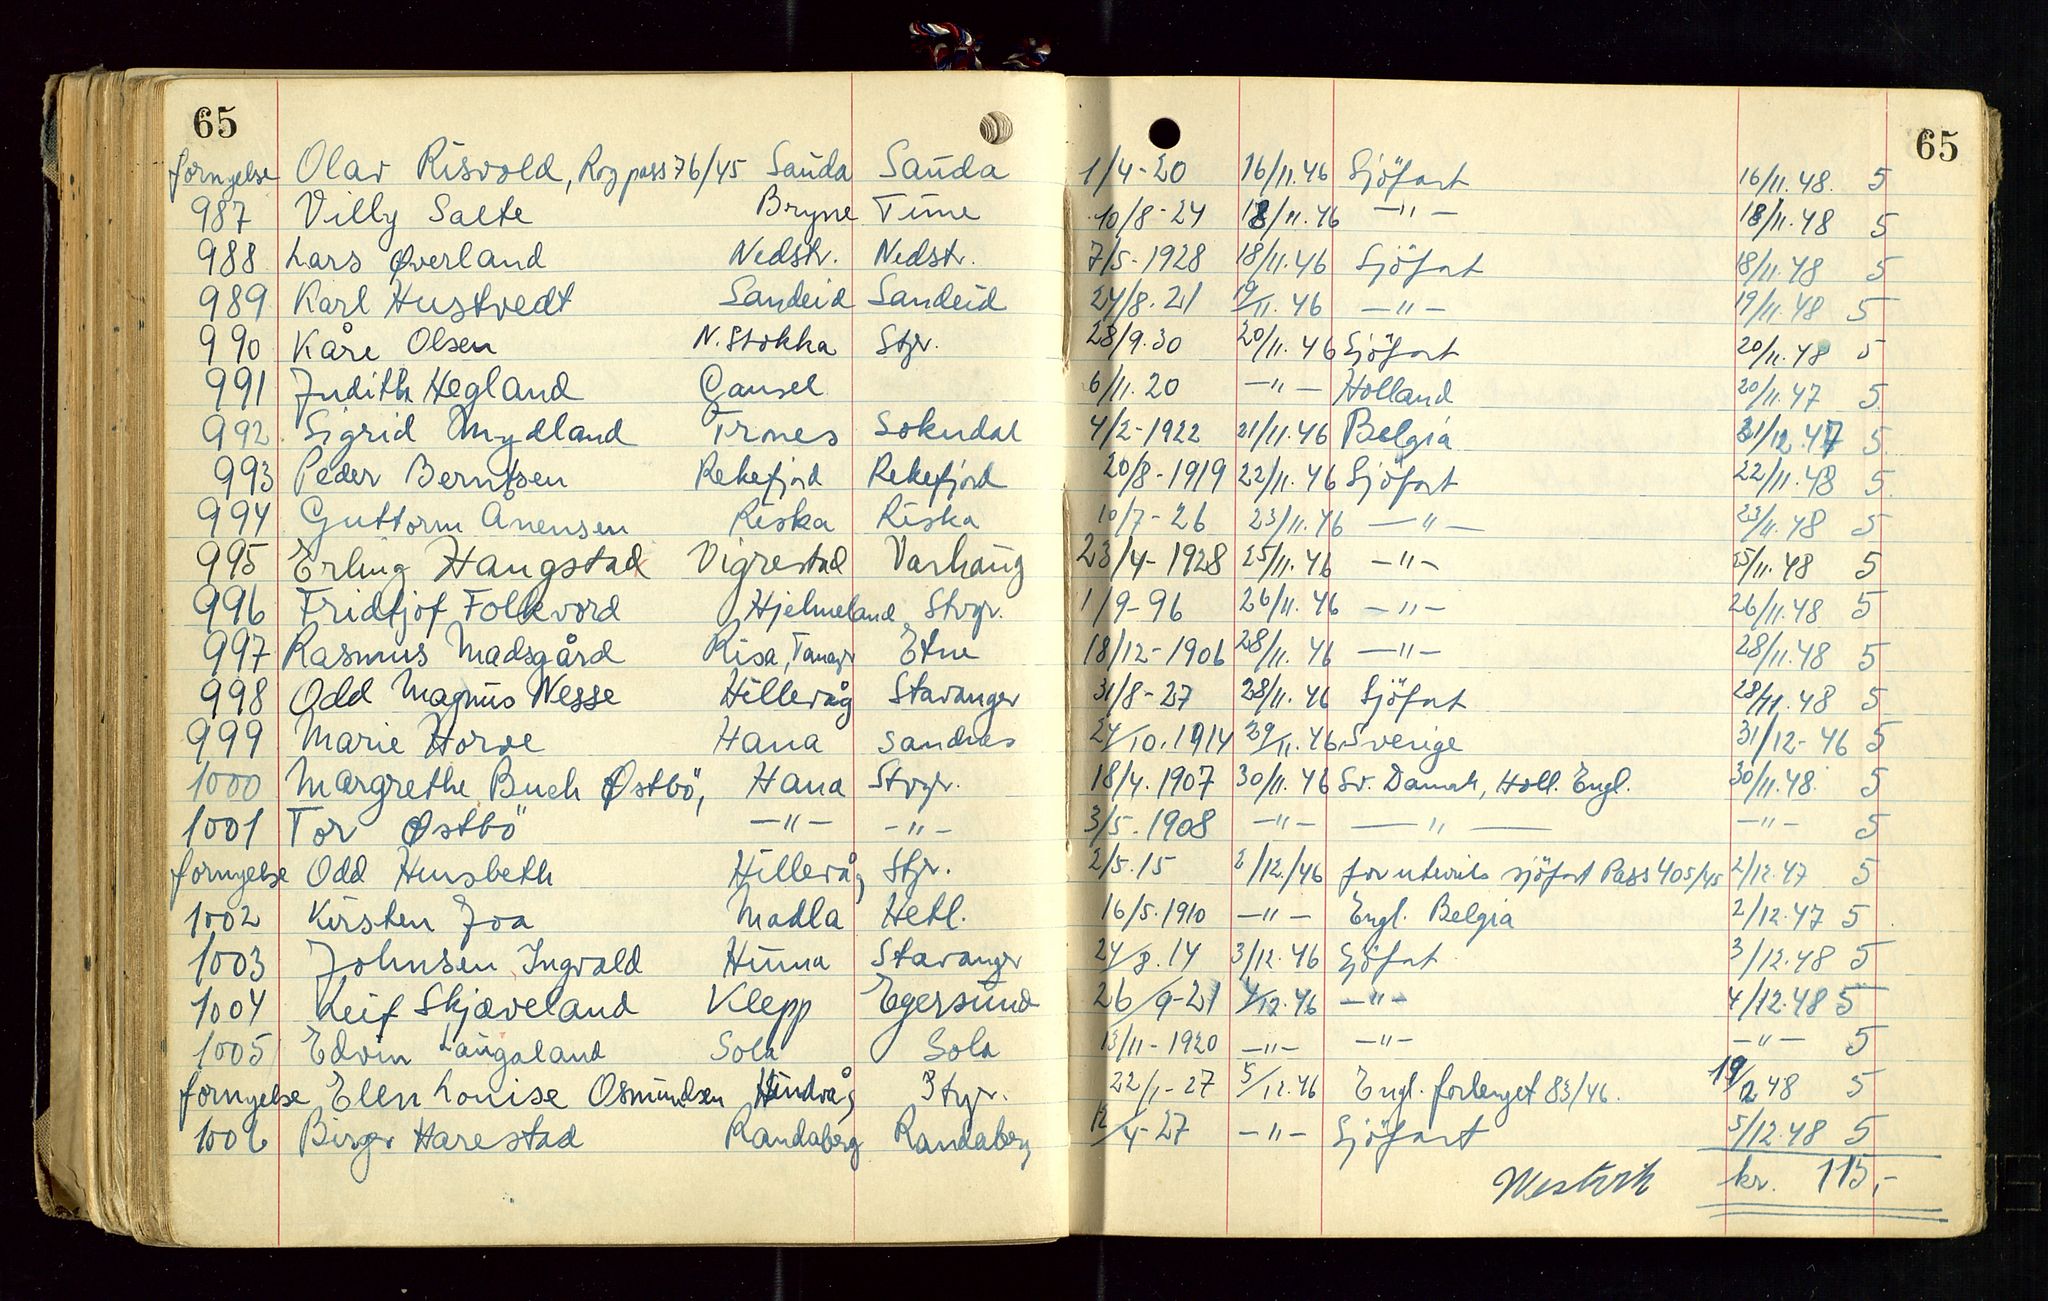 65 65
fornyelse Olav Risvold, Rog pass 76/45 Sauda Sauda 1/4-20 16/11.46 Sjöfart 16/11.48. 5
987 Villy Salte Bryne Time 10/8-24 18/11.46 —"— 18/11.48 5
988 Lars Øverland Nedstr. Nedstr. 7/5-1928 18/11.46 Sjöfart 18/11.48 5
989 Karl Hustvedt Sandeid Sandeid 24/8.21 19/11.46 —"— 19/11.48 5
990 Kåre Olsen N.Stokka Stgr. 28/9.30 20/11.46 Sjöfart 20/11.48 5
991 Judith Hegland Gausel 6/11.20 —"— Holland 20/11.47 5
992 Sigrid Mydland Trones Sokndal 4/2-1922 21/11.46 Belgia 31/12.47 5
993 Peder Berntsen Rekefjord Rekefjord 20/8-1919 22/11.46 Sjöfart 22/11.48 5
994 Guttorm Anensen Riska Riska 10/7-26 23/11.46 —"— 23/11.48 5
995 Erling Haugstad Vigrestad Varhaug 23/4-1928 25/11.46 —"— 25/11.48 5
996 Fridtjof Folkvord Hjelmeland Stvgr. 1/9-96 26/11.46 —"— 26/11.48 5
997 Rasmus Madsgård Risa, Etne 18/12-1906 28/11.46 —"— 28/11.48 5
998 Odd Magnus Nesse Hillevåg Stavanger 31/8-27 28/11.46 Sjöfart 28/11.48 5
999 Marie Horve Hana Sandnes 24/10.1914 29/11.46 Sverige 31/12-46 5
1000 Margrethe Buch Østbö, Hana Stvgr. 18/4.1907 30/11.46 Sv. Danmk, Holl. Engl. 30/11.48. 5
1001 Tor Østbö —"— —"— 3/5.1908 —"— —"— —"— 5
fornyelse Odd Husbeth Hillevåg Stgr. 2/5.15 2/12./46 for utenriks sjöfart Pass 405/45 2/12.47 5
1002 Kirsten Joa Madla Hetl. 16/5.1910 —"— Engl. Belgia 2/12.47 5
1003 Johnsen Ingvald Hinna Stavanger 24/8.14 3/12.46 Sjöfart 3/12.48 5
1004 Leif Skjæveland Klepp Egersund 26/9-21 4/12.46 —"— 4/12.48 5
1005 Edvin Langaland Sola Sola 13/11-1920 —"— —"— —"— 5
fornyelse Elen Louise Osmundsen Hundvåg Stgr. 22/1-27 5/12.46 Engl. forlenget 83/46. 19/2 48 5
1006 Birger Harestad Randaberg Randaberg 12/4-27 —"— Sjöfart 5/12.48 5
kr. 115,-